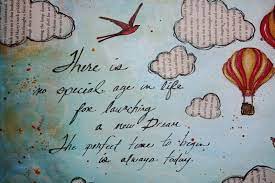 There is
no special age in life
for launching
a new Dream
The perfect time to begin
is always today.